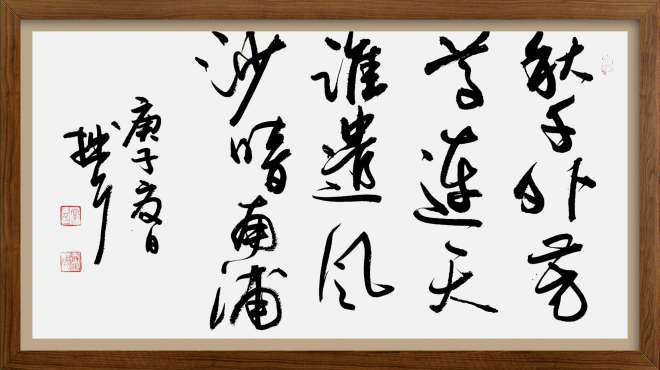 秋千外芳
草連天
誰遣风
沙暗南浦
庚子夏日
拙